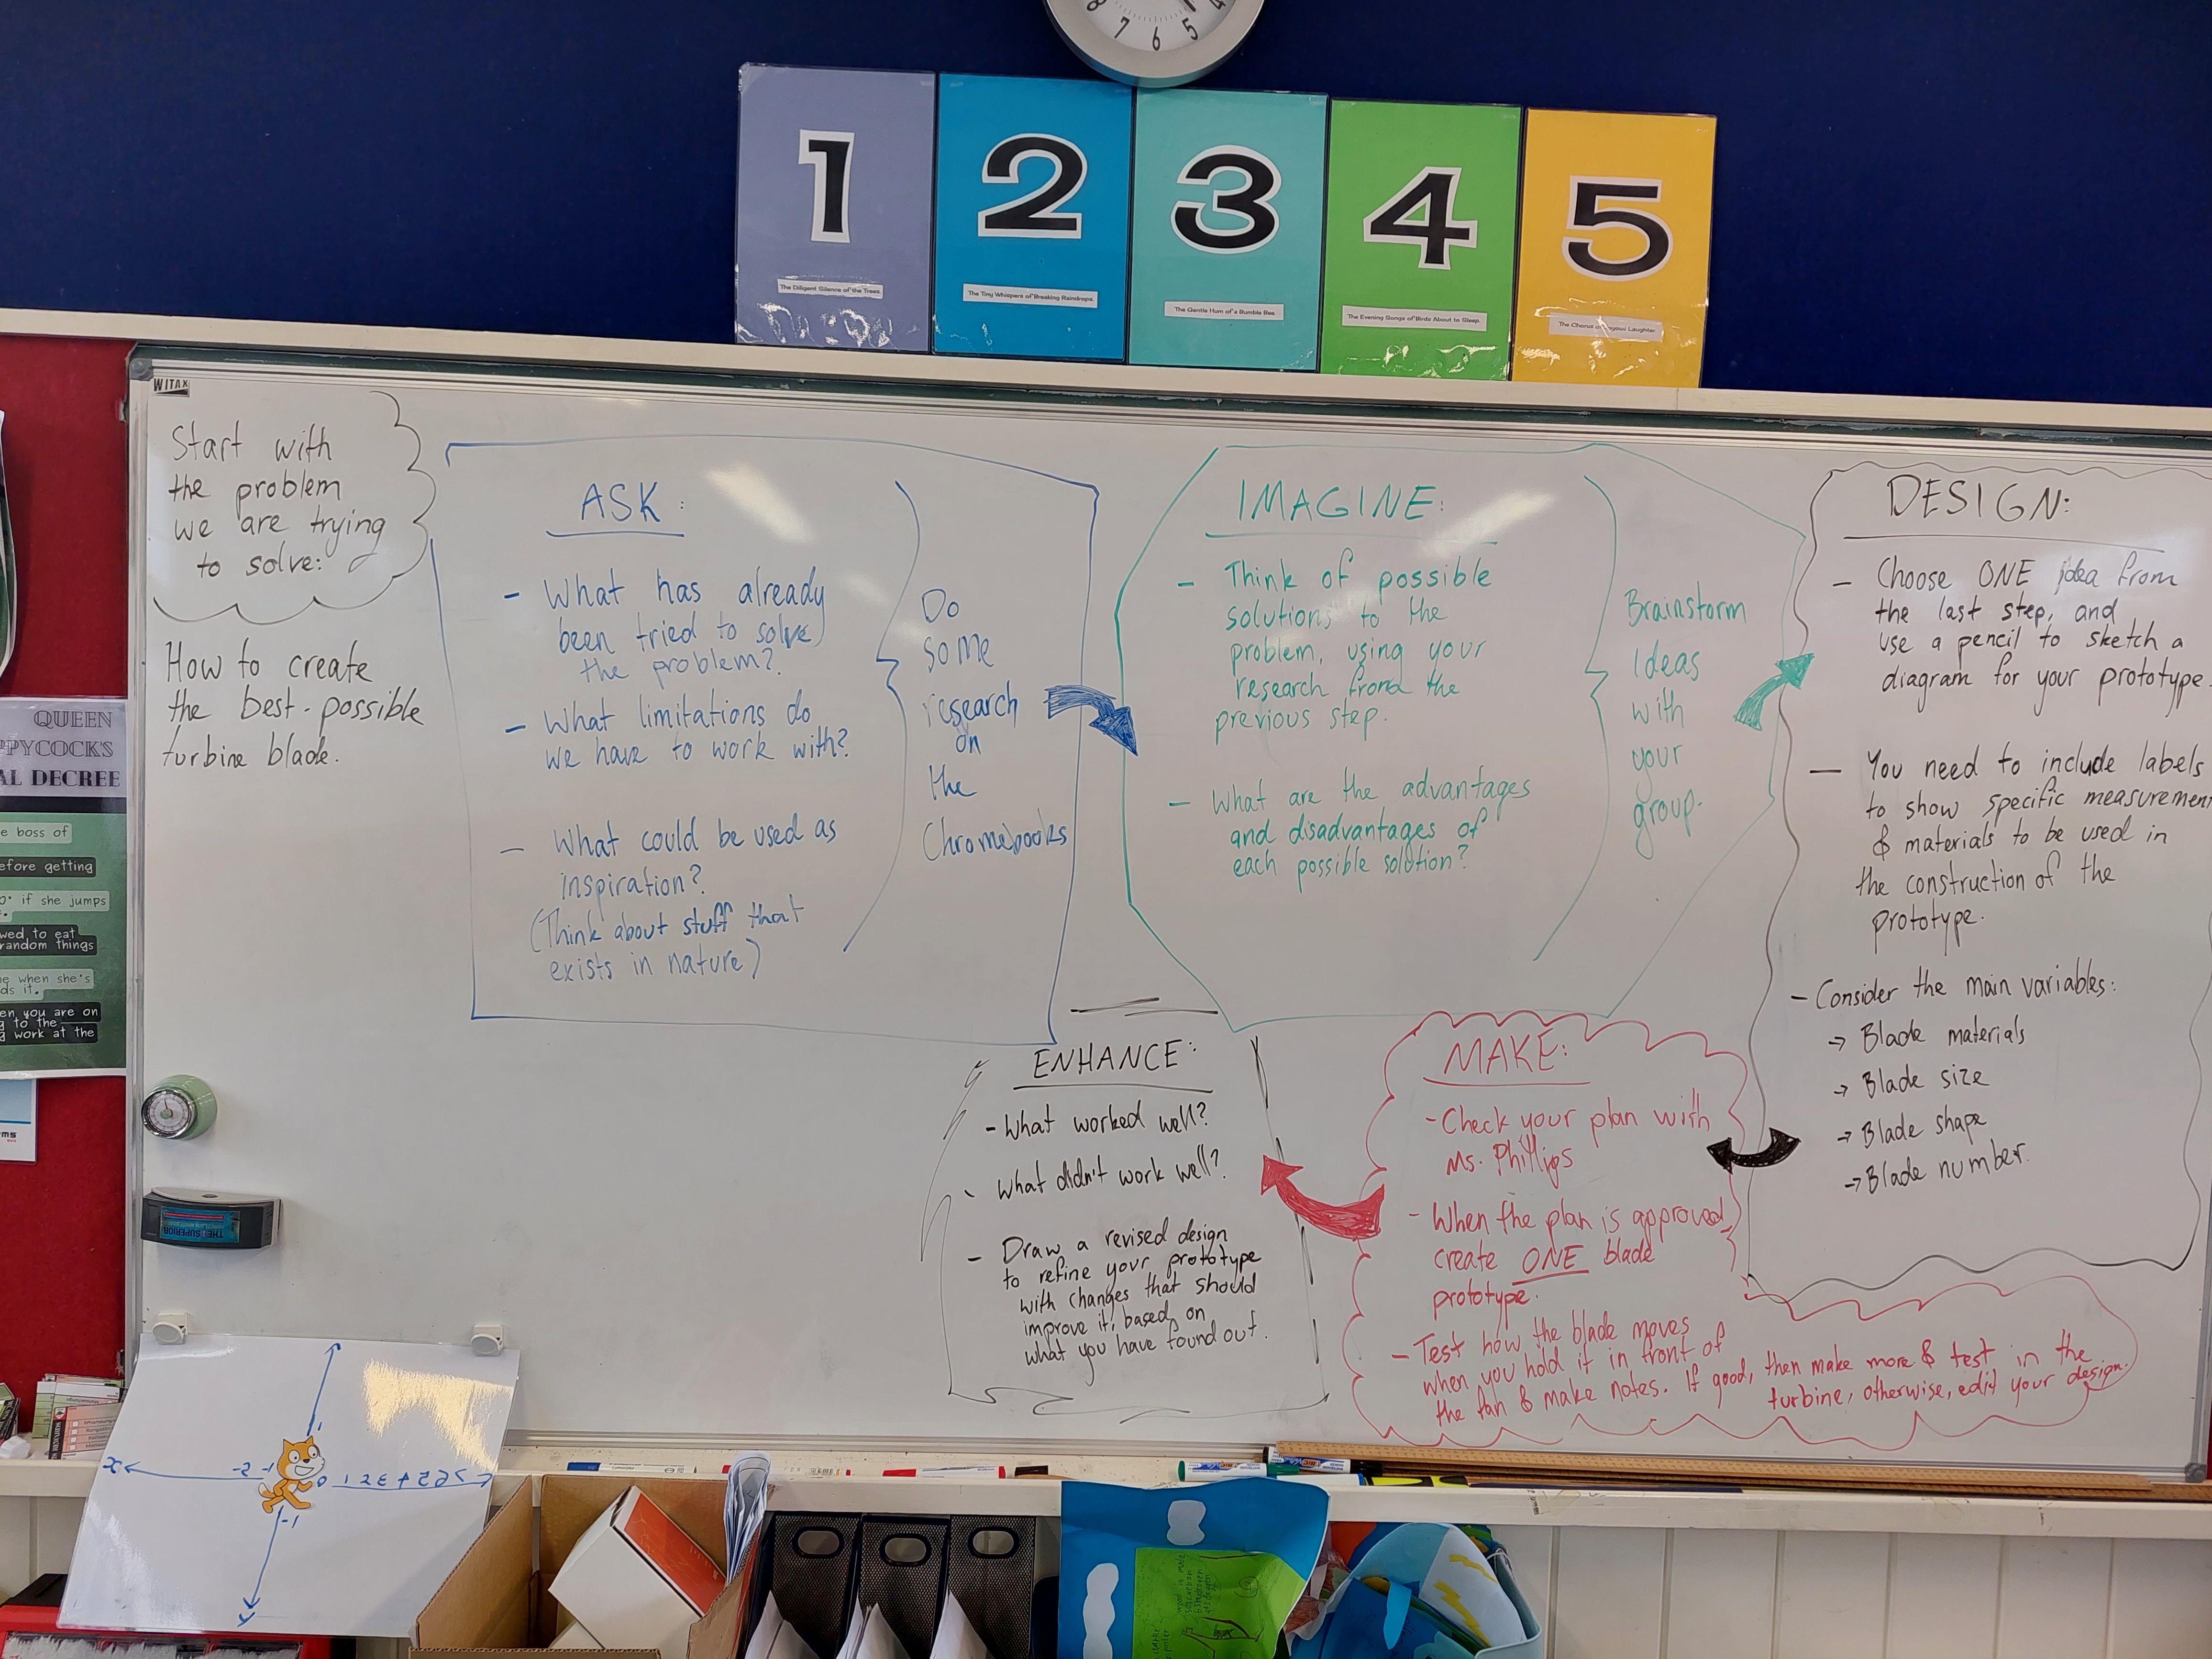 8 7 6 5 4
1
The Diligent Silence of the Trees.
2
The Tiny Whispers of Breaking Raindrops.
3
The Gentle Hum of a Bumble Bee.
4
The Evening Songs of Birds About to Sleep.
5
The Chorus Laughter.
WITAX
Start with
the problem
we are trying
to solve:
How to create
the best possible
turbine blade.
ASK:
- What has already
been tried to solve
the problem?
- What limitations do
we have to work with?
- What could be used as
inspiration?
(Think about stuff that
exists in nature)
Do
some
research
on
the
Chromebooks
IMAGINE:
- Think of possible
solutions to the
problem, using your
research from the
previous step.
- What are the advantages
and disadvantages of
each possible solution?
Brainstorm
Ideas
with
your
group.
DESIGN:
- Choose ONE idea from
the last step, and
use a pencil to sketch a
diagram for your prototype.
- You need to include labels
to show specific measurement
& materials to be used in
the construction of the
prototype.
- Consider the main variables:
→ Blade materials
→ Blade size
→ Blade shape
→ Blade number.
MAKE:
- Check your plan with
Ms. Phillips
- When the plan is approved,
create ONE blade
prototype.
- Test how the blade moves
when you hold it in front of
the fan & make notes. If good, then make more & test in the
turbine, otherwise, edit your design.
ENHANCE:
- What worked well?
- What didn't work well?
- Draw a revised design
to refine your prototype
with changes that should
improve it, based on
what you have found out.
QUEEN
PPYCOCK'S
AL DECREE
e boss of
efore getting
if she jumps
wed to eat
random things
e when she's
ds it.
en you are on
g to the
g work at the
ms
THE SUPERIOR
1
x -2 -1 0 1 2 3 4 5 6 7
-1
y